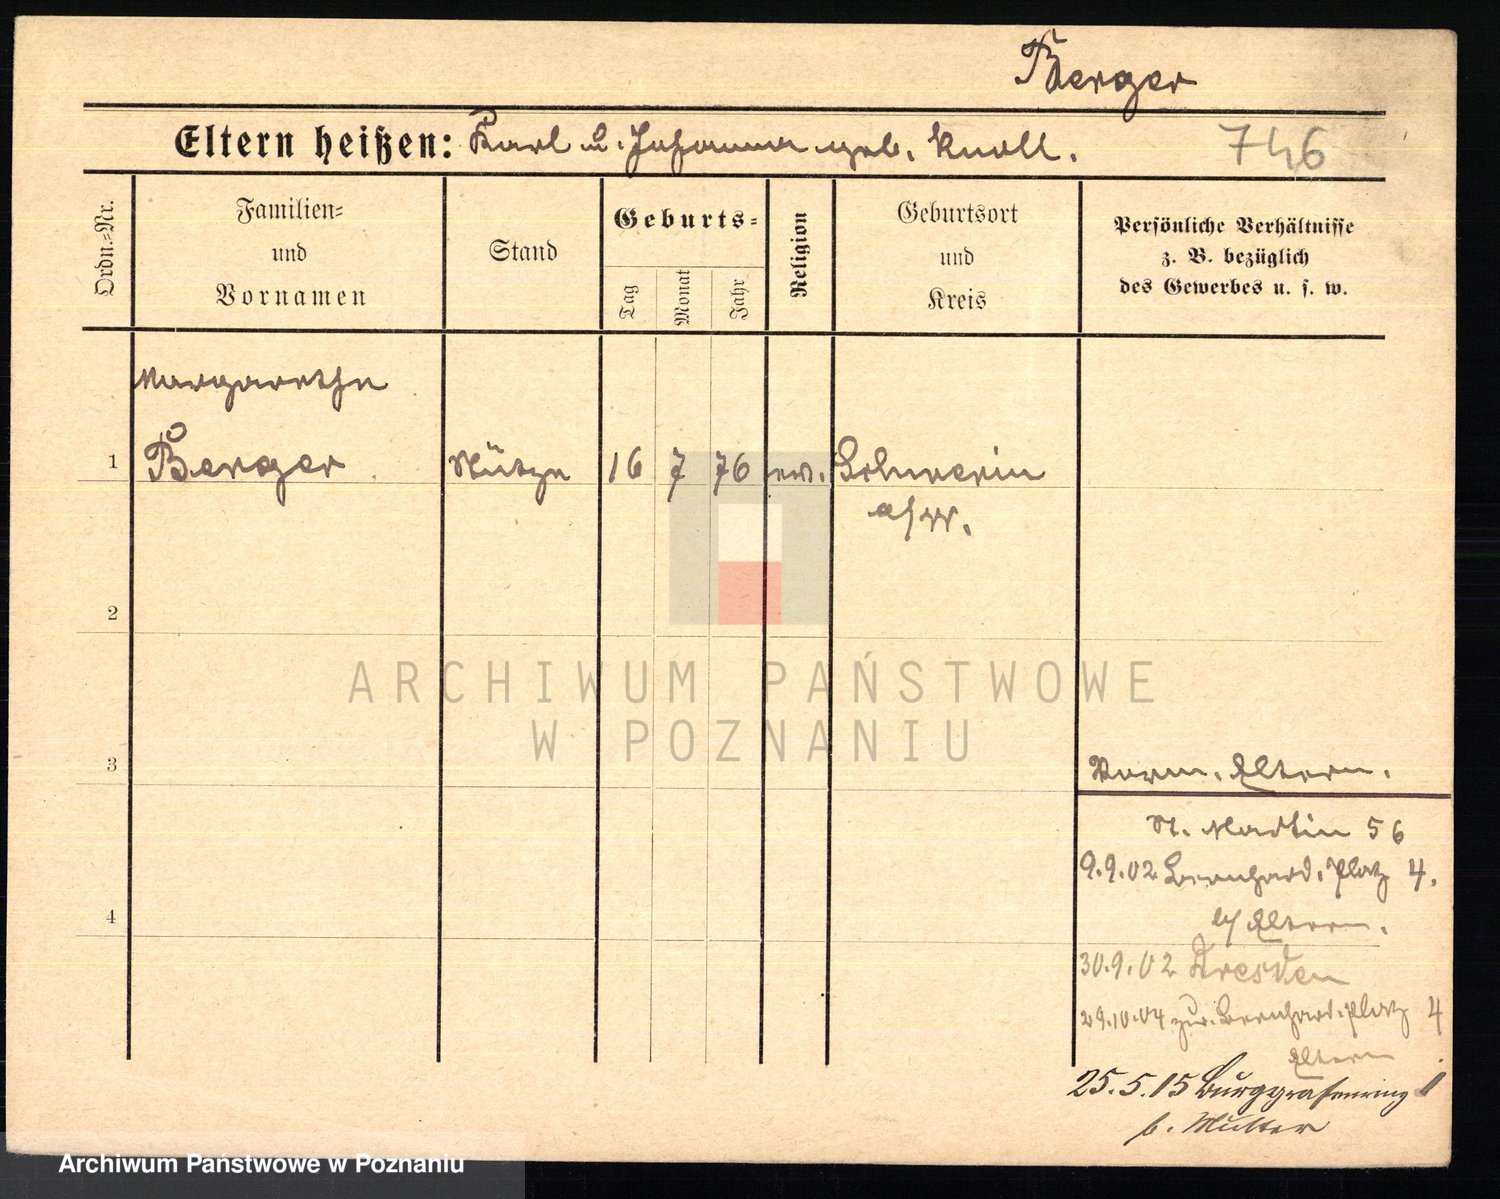 Berger
Eltern heißen: Karl u. Johanna geb. Knoll.
746
Ordn.=Nr.
Familien=
und
Vornamen
Stand
Geburts=
Tag
Monat
Jahr
Religion
Geburtsort
und
Kreis
Persönliche Verhältnisse
z. B. bezüglich
des Gewerbes u. s. w.
Margarethe
1 Berger 16 7 76 ev. Schwerin
a/W.
2
3
Vorm. Eltern.
St. Martin 56
9.9.02 Bernhard.Platz 4.
b/ Eltern.
4
30.9.02 Dresden
29.10.04 zur. Bernhard.Platz 4
Eltern
25.5.15 Burggrafenring 1
b. Mutter
ARCHIWUM PAŃSTWOWE
W POZNANIU
Archiwum Państwowe w Poznaniu